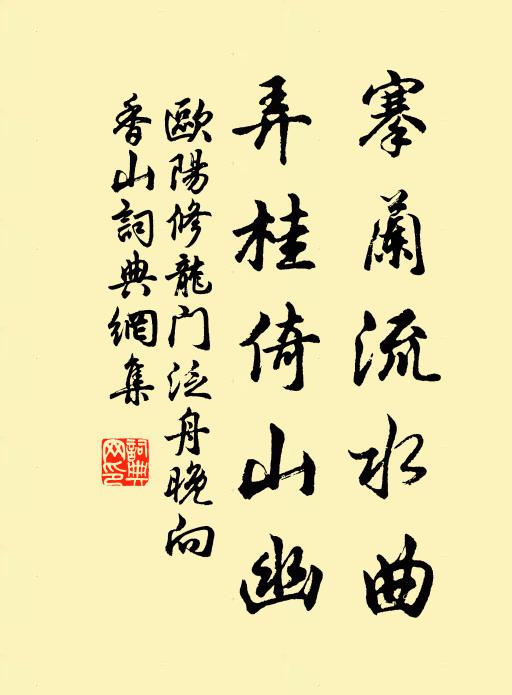 搴蘭流水曲
弄桂倚山幽
歐陽修龍门泛舟晚向
香山詞典網集
詞典网印